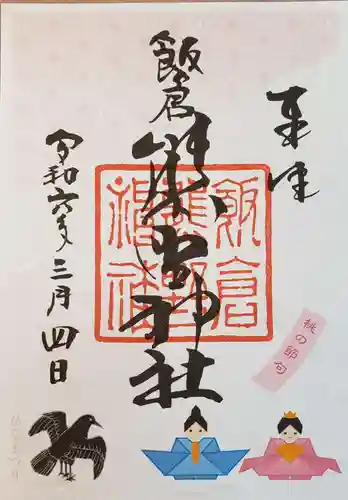 奉拝
飯倉
熊野神社
飯倉
熊野
神社
令和六年三月四日
桃の節句